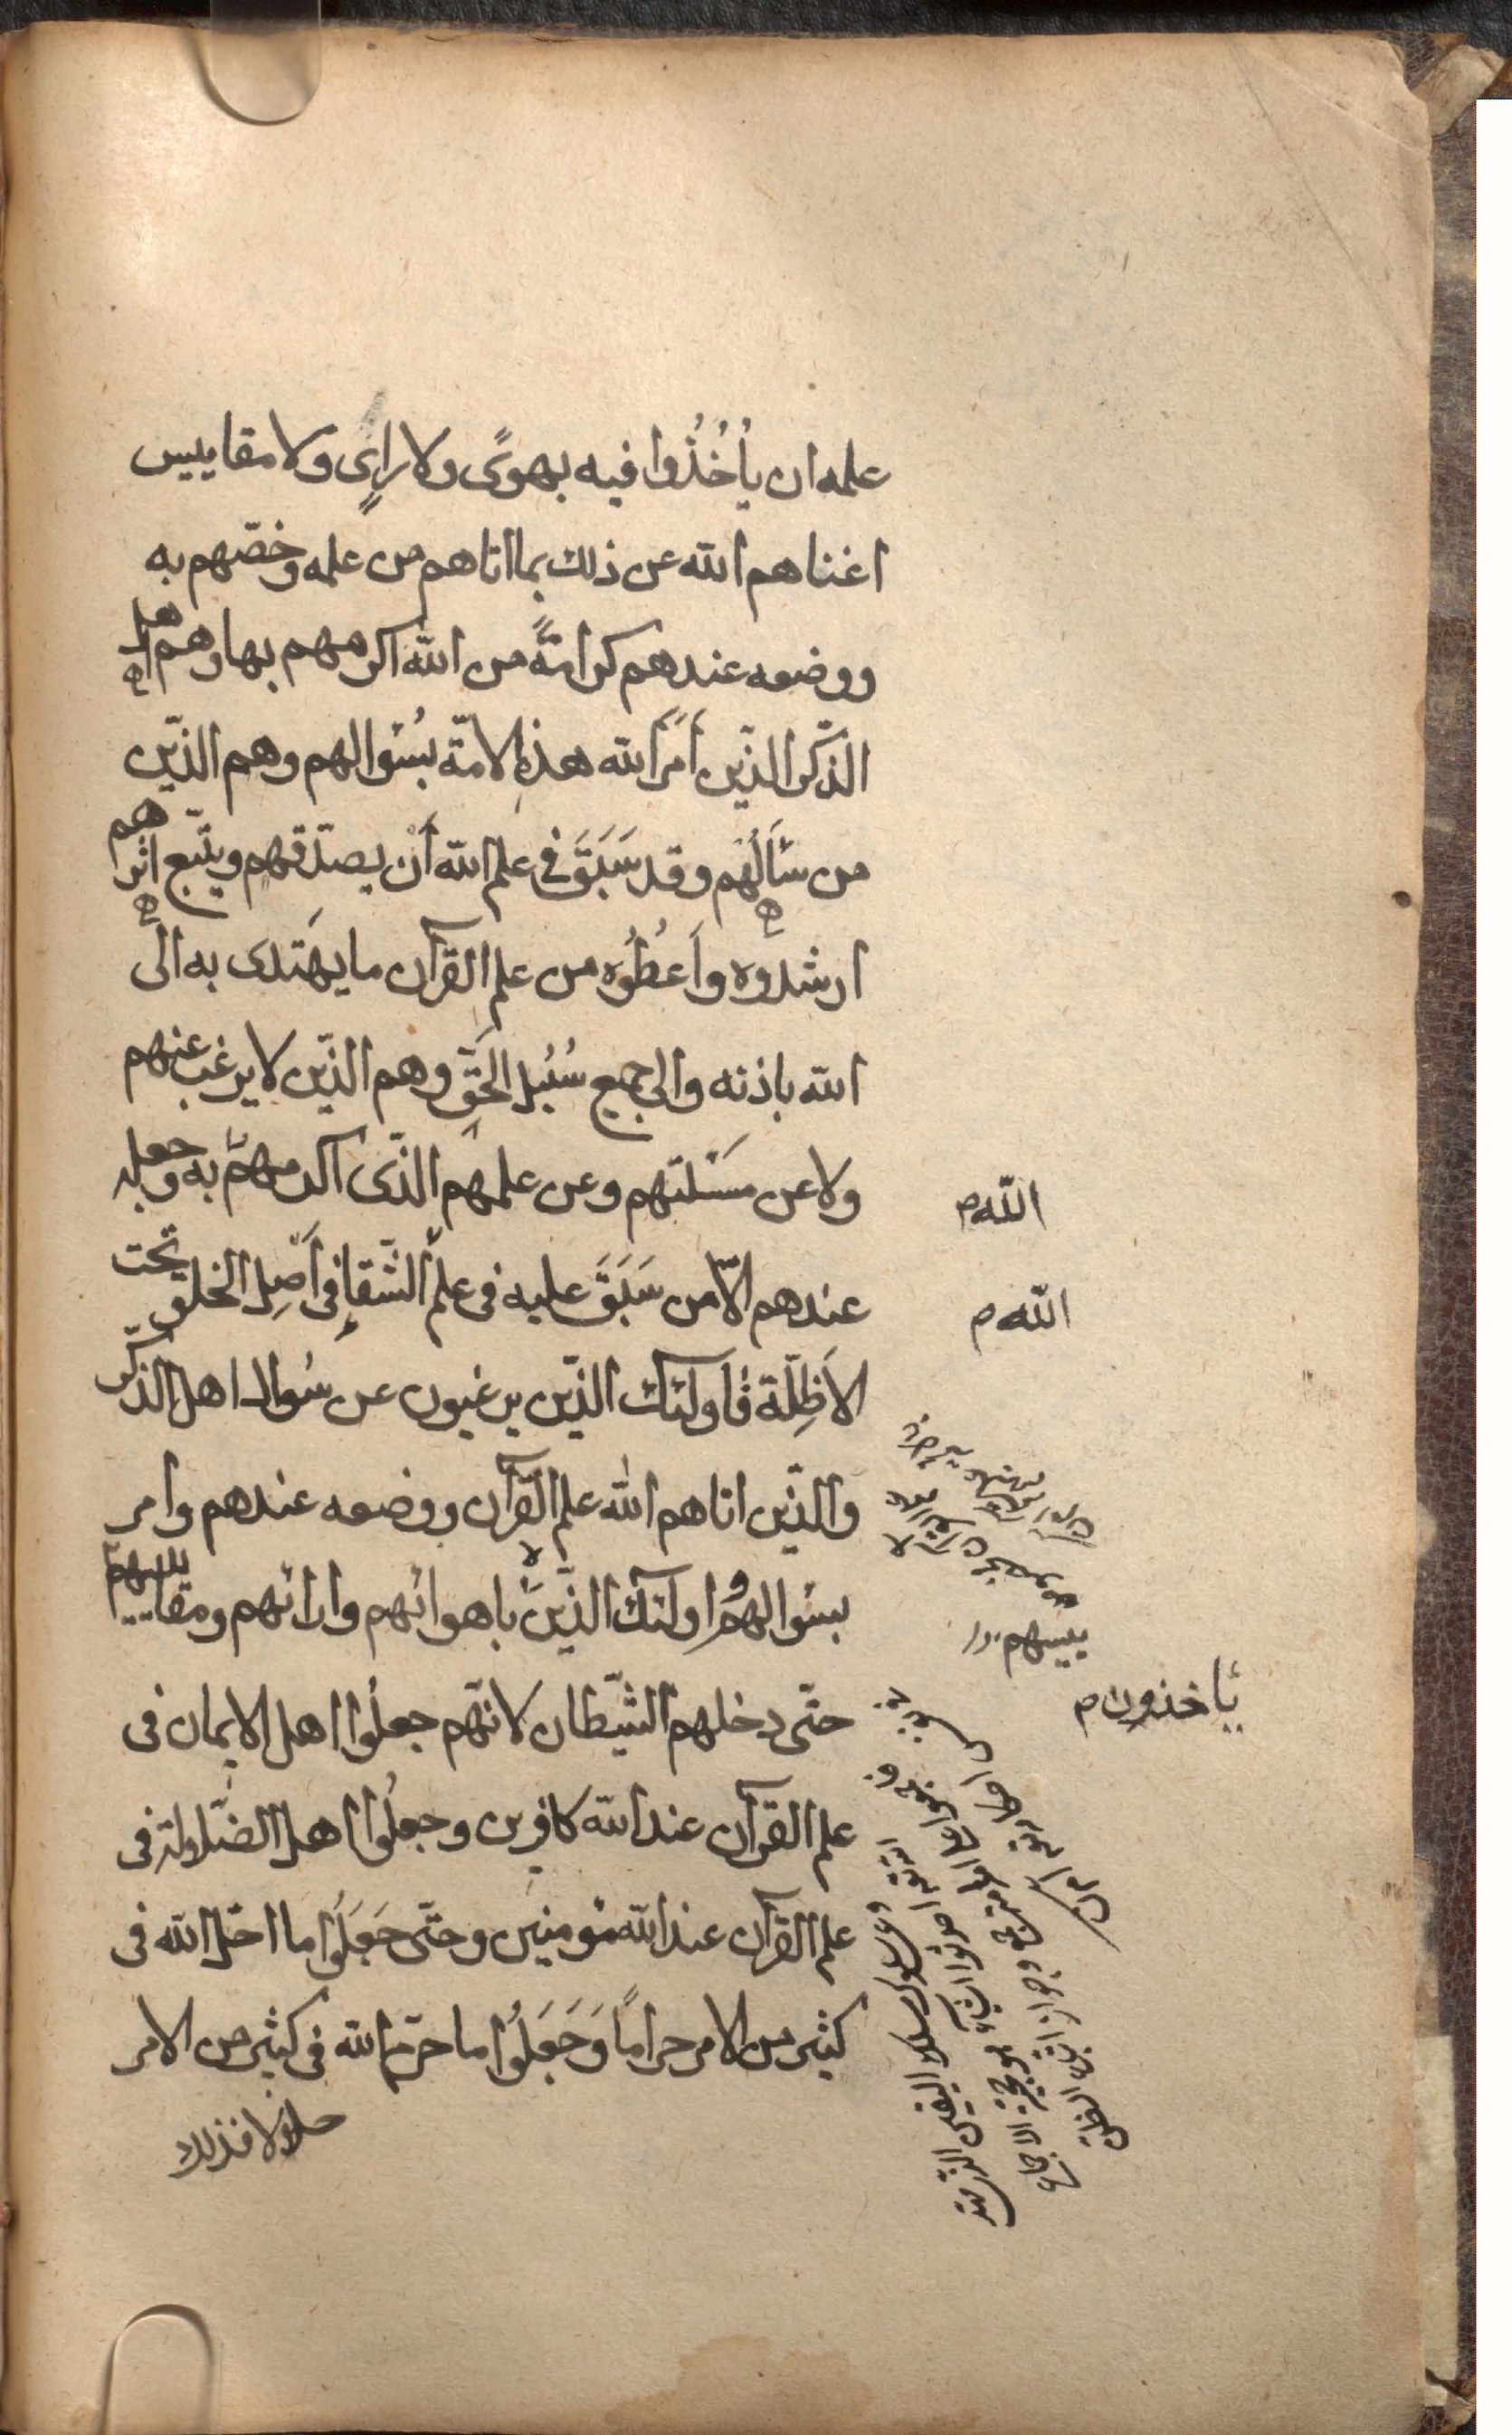 علمه ان يأخُذُوا فيه بهوىً ولا رايٍ ولا مقاييس
اغناهم الله عن ذلك بما اتاهم من علمه وخصّهم به
ووضعه عندهم كرامةً من الله اكرمهم بها وهم اهل
الذّكر الذّين أمرَ الله هذه الامّة بسُئوالهم وهم الذّين
من سَألَهُم وقد سَبَقَ في علم الله أن يصدّقهم ويتّبع اثرهم
ارشدوه وأعطُوُه من علم القرآن ما يهتدى به الى
الله باذنه والى جميع سُبُل الحَقِّ وهم الذّين لا يرغب عنهم
ولا عن مسئلتهم وعن علمهم الذّى اكرمهم به وجعله
اللّه م
عندهم الّا من سَبَقَ عليه فى علم الشّقاءِ فى أصل الخلق تحت
اللّه م
الأظِلّة فاولئك الذّين يرغبون عن سُوال اهل الذّكر
والذّين اتاهم الله علم القرآن ووضعه عندهم وامر
بسئوالهم واولئك الذّين باهوائهم وارائهم ومقاييسهم
ييسهم
يأخذون م
حتّى دخلهم الشّيطان لانّهم جعلُوا اهل الايمان فى
علم القرآن عند الله كافرين وجعلُوا اهل الضّلالة فى
علم القرآن عند الله مؤمنين وحتّى جَعَلُوا ما احلّ الله فى
كثير من الامر حراماً وَجَعَلُوا ما حرّم الله فى كثير من الامر
حلالا فذلك